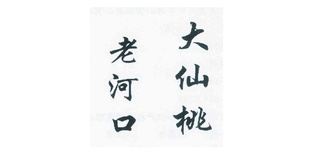 老河口
大仙桃